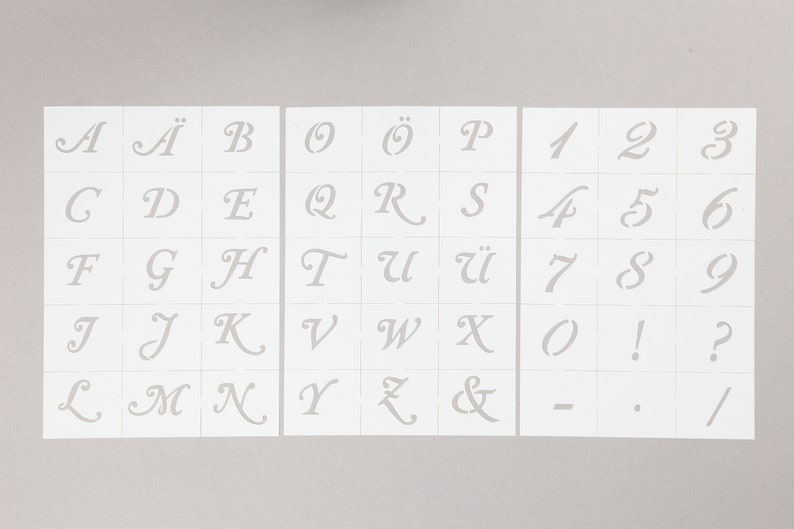 A Ä B
C D E
F G H
I J K
L M N
O Ö P
Q R S
T U Ü
V W X
Y Z &
1 2 3
4 5 6
7 8 9
0 ! ?
- . /